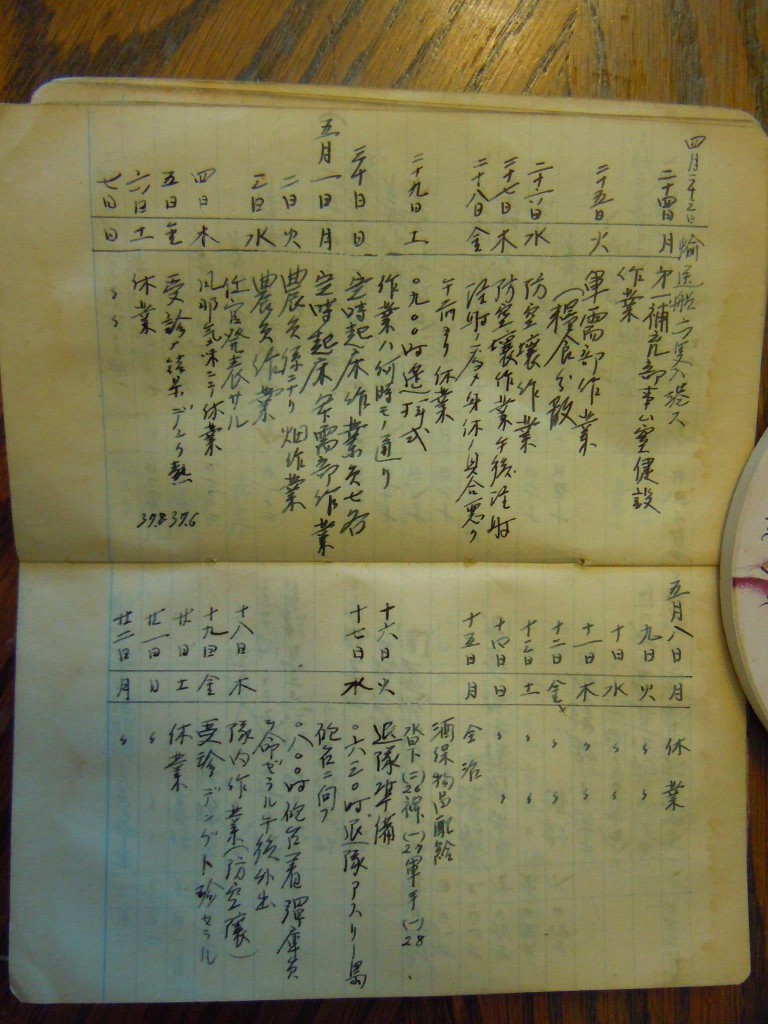 四月二十三日 輸送船六隻入港ス
二十四日 月 第一補充部事ム室建設
作業
二十五日 火 軍需部作業
(糧食分散
二十六日 水 防空壕作業
二十七日 木 防空壕作業午後注射
二十八日 金 注射ノ為メ身体ノ具合悪ク
午前ヨリ休業
二十九日 土 〇九〇〇時遙拝式
作業ハ何時モノ通り
三十日 日 定時起床作業員七名
五月一日 月 定時起床軍需部作業
二日 火 農員係ニナリ畑作業
三日 水 農員作業
任官発表サル
四日 木 風邪気味ニテ休業
五日 金 受診ノ結果デング熱
六日 土 休業 37.8 37.6
七日 日 〃 〃
五月八日 月 休業
九日 火 〃 〃
十日 水 〃 〃
十一日 木 〃 〃
十二日 金 〃 〃
十三日 土 〃 〃
十四日 日 〃 〃
十五日 月 全治
酒保物品配給
(二)26 (一)27 軍手(一)28
十六日 火 退隊準備
十七日 水 〇六三〇時退隊アスリート島
砲台ニ向フ
〇八〇〇時砲台着弾庫員
ヲ命ゼラル午後外出
十八日 木 隊内作業(防空壕)
十九日 金 受診デングト診セラル
廿日 土 休業
廿一日 日 〃
廿二日 月 〃